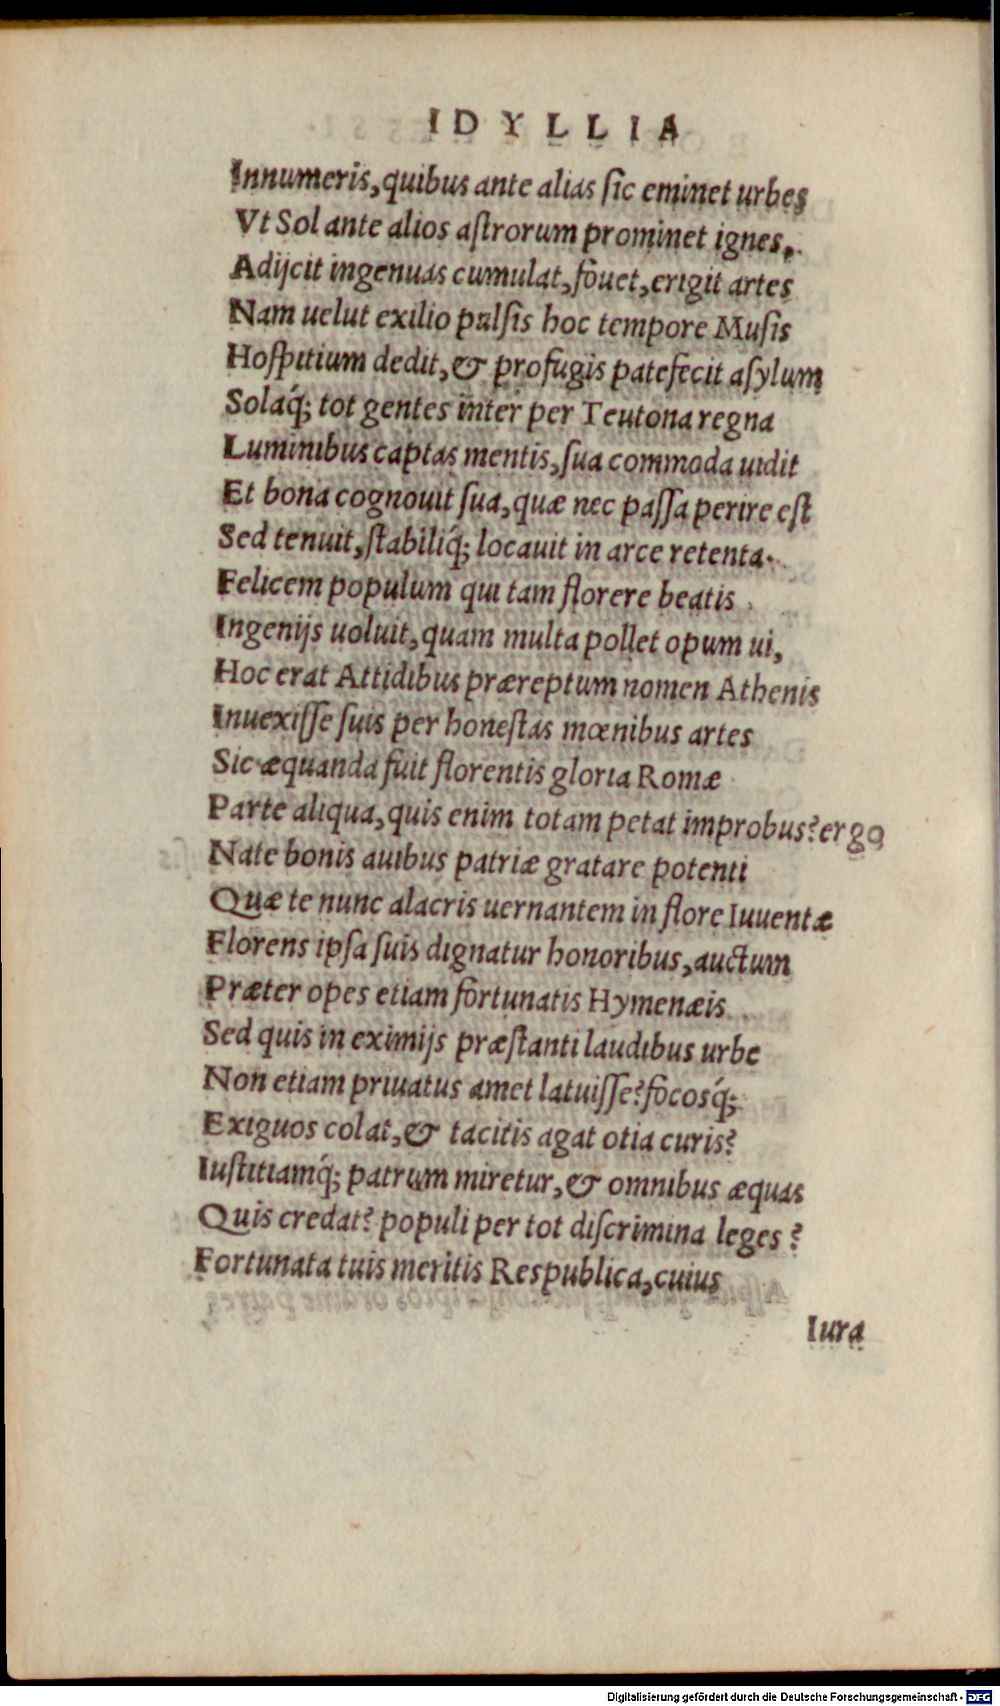 IDYLLIA
Innumeris, quibus ante alias ſic eminet urbes
Vt Sol ante alios aſtrorum prominet ignes,
Adijcit ingenuas cumulat, fouet, erigit artes
Nam uelut exilio pulſis hoc tempore Muſis
Hoſpitium dedit, & profugis patefecit aſylum
Solaq́; tot gentes inter per Teutona regna
Luminibus captas mentis, ſua commoda uidit
Et bona cognouit ſua, quæ nec paſſa perire eſt
Sed tenuit, ſtabiliq́; locauit in arce retenta.
Felicem populum qui tam florere beatis
Ingenijs uoluit, quam multa pollet opum ui,
Hoc erat Attidibus præreptum nomen Athenis
Inuexiſſe ſuis per honeſtas mœnibus artes
Sic æquanda fuit florentis gloria Romæ
Parte aliqua, quis enim totam petat improbus? ergo
Nate bonis auibus patriæ gratare potenti
Quæ te nunc alacris uernantem in flore Iuuentæ
Florens ipſa ſuis dignatur honoribus, auctum
Præter opes etiam fortunatis Hymenæis
Sed quis in eximijs præſtanti laudibus urbe
Non etiam priuatus amet latuiſſe? focosq́;
Exiguos colat, & tacitis agat otia curis?
Iuſtitiamq́; patrum miretur, & omnibus æquas
Quis credat? populi per tot diſcrimina leges?
Fortunata tuis meritis Respublica, cuius
Iura
Digitalisierung gefördert durch die Deutsche Forschungsgemeinschaft - DFG